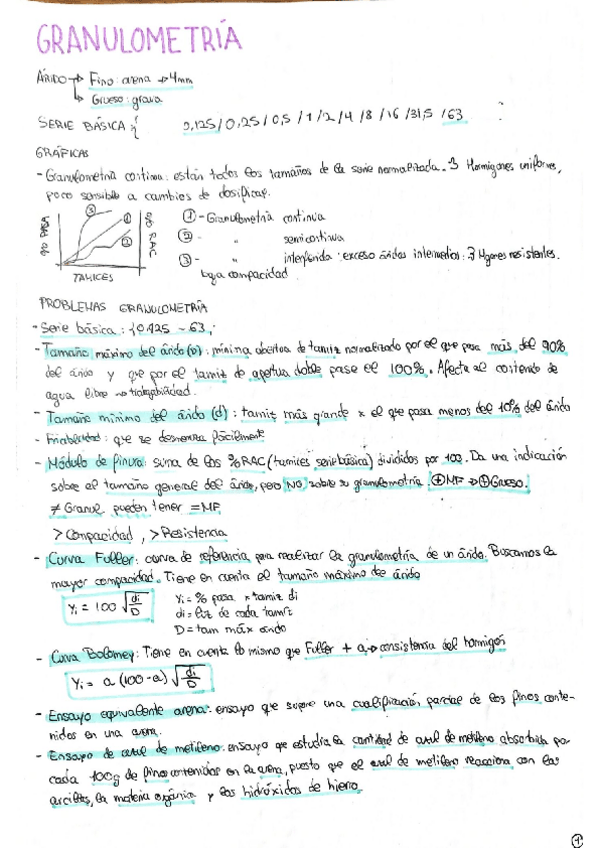 GRANULOMETRÍA
ÁRIDO → Fino: arena → 4mm
→ Grueso: grava
SERIE BÁSICA: { 0,125 / 0,25 / 0,5 / 1 / 2 / 4 / 8 / 16 / 31,5 / 63
GRÁFICAS
- Granulometría continua: están todos los tamaños de la serie normalizada. Hormigones uniformes,
poco sensible a cambios de dosificac.
% PASA
% RAC
TAMICES
① ② ③
① - Granulometría continua
② - " semicontinua
③ - " interferida: exceso áridos intermedios: Hgones resistentes.
baja compacidad
PROBLEMAS GRANULOMETRÍA
- Serie básica: {0,125 - 63,
- Tamaño máximo del árido (D): mínima abertura de tamiz normalizado por el que pasa más del 90%
del árido y que por el tamiz de apertura doble pase el 100%. Afecta al contenido de
agua libre → trabajabilidad.
- Tamaño mínimo del árido (d): tamiz más grande x el que pasa menos del 10% del árido
- Friabilidad: que se desmorona fácilmente
- Módulo de finura: suma de los %RAC (tamices serie básica) divididos por 100. Da una indicación
sobre el tamaño general del árido, pero NO sobre su granulometría. ⊕MF → ⊕Grueso.
≠ Granul pueden tener = MF
> Compacidad, > Resistencia
- Curva Fuller: curva de referencia para realizar la granulometría de un árido. Buscamos la
mayor compacidad. Tiene en cuenta el tamaño máximo de árido
Yi = 100 √(di/D)
Yi = % pasa x tamiz di
di = luz de cada tamiz
D = tam máx árido
- Curva Bolomey: Tiene en cuenta lo mismo que Fuller + a → consistencia del hormigón
Yi = a (100-a) √(di/D)
- Ensayo equivalente arena: ensayo que supone una cualificación parcial de los finos conte-
nidos en una arena.
- Ensayo de azul de metileno: ensayo que estudia la cantidad de azul de metileno absorbida por
cada 100g de finos contenidos en la arena, puesto que el azul de metileno reacciona con las
arcillas, la materia orgánica y los hidróxidos de hierro
1